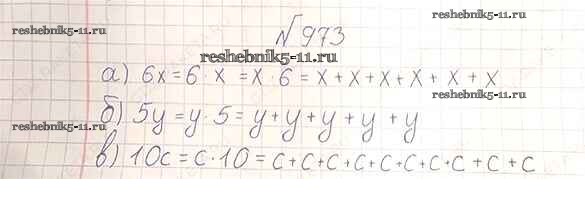 reshebnik5-11.ru.
reshebnik5-11.ru.
№973
reshebnik5-11.ru.
а) 6x = 6 · x = x · 6 = x + x + x + x + x + x
reshebnik5-11.ru.
б) 5y = y · 5 = y + y + y + y + y
reshebnik5-11.ru.
reshebnik5-11.ru.
в) 10c = c · 10 = c + c + c + c + c + c + c + c + c + c